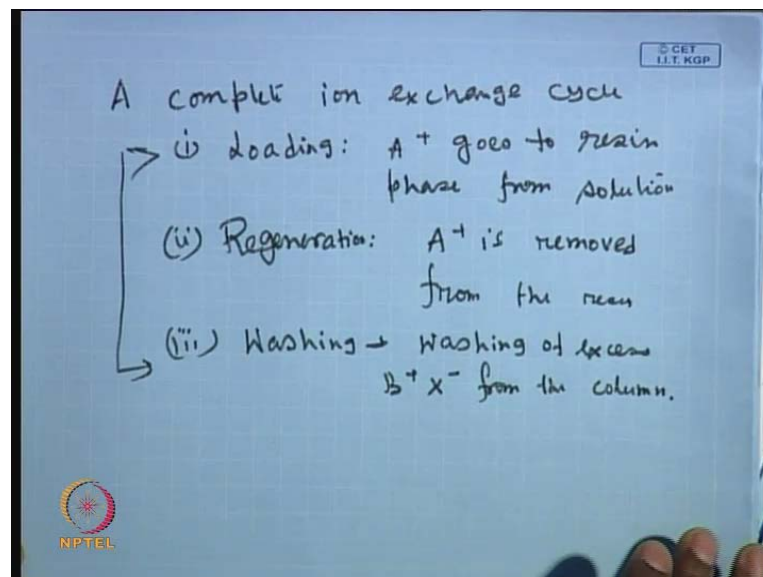 © CET
I.I.T. KGP
A complete ion exchange cycle
(i) Loading: A+ goes to resin
phase from solution
(ii) Regeneration: A+ is removed
from the resin
(iii) Washing → Washing of excess
B+ X- from the column.
NPTEL